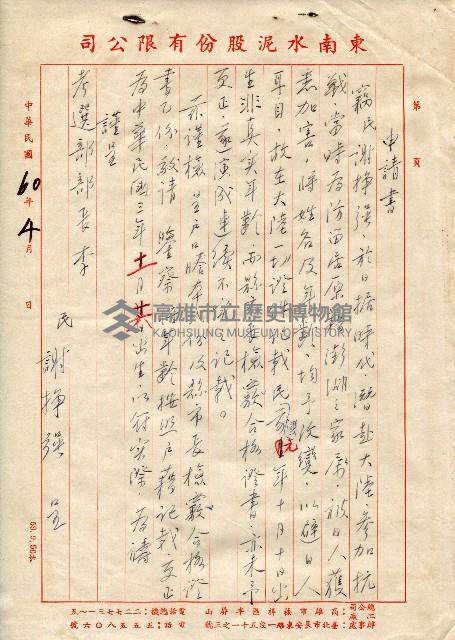 東南水泥股份有限公司
第 頁
申請書
竊民謝掙强於日据時代潛赴大陸參加抗
戰當時為防留居原籍澎湖之家屬被日人藉
加害將姓名及年齡均予改變以避日人
耳目故在大陸一切證件記載民國元年十月十日出
生非真实年齡而縣市長檢覈合格證書亦未予
更正遂演成連續不之記載。
茲謹檢呈戶口謄本份及縣市長檢覈合格證
書乙份敬請鑒察年齡按照戶藉記載更正
為中華民國三年十一月廿六出生以符实際為禱
謹呈
考選部部長李
民 謝掙强 呈
中華民國60年4月 日
高雄市立歷史博物館
KAOHSIUNG MUSEUM OF HISTORY
總公司工廠:高雄市楠梓區半屏山 電話總機:二二七七三一一五
辦事處:臺北市長安東路一段五十一之三號 電話:五五五八〇六號